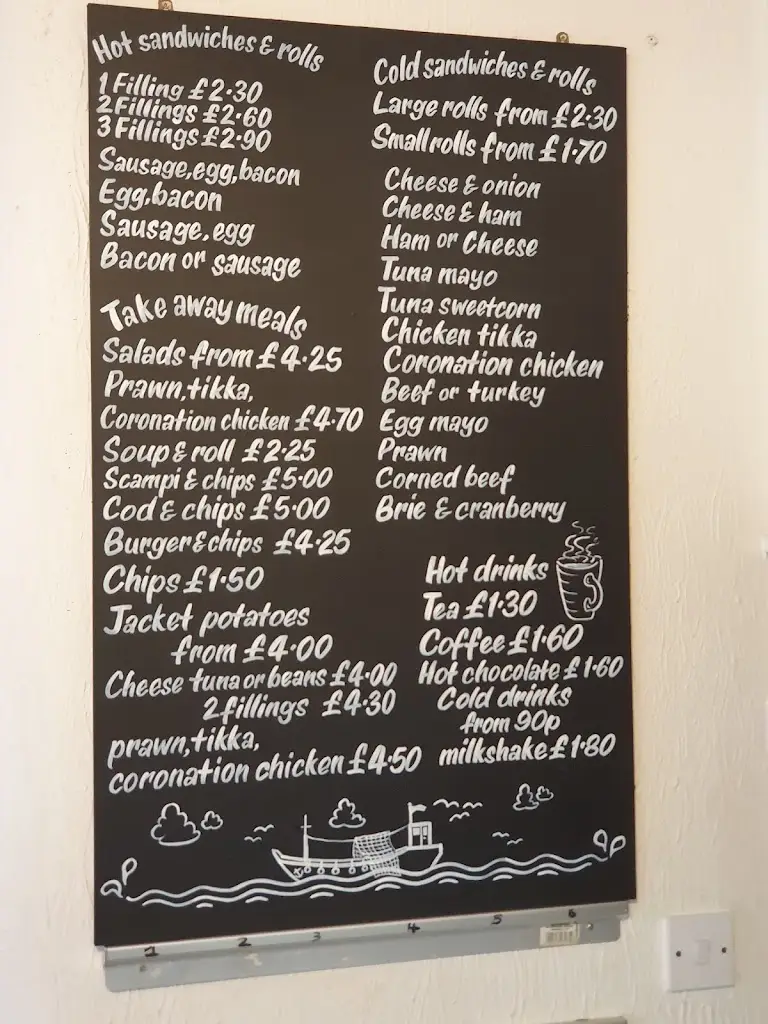 Hot sandwiches & rolls
1 Filling £2·30
2 Fillings £2·60
3 Fillings £2·90
Sausage, egg, bacon
Egg, bacon
Sausage, egg
Bacon or sausage
Take away meals
Salads from £4·25
Prawn, tikka,
Coronation chicken £4·70
Soup & roll £2·25
Scampi & chips £5·00
Cod & chips £5·00
Burger & chips £4·25
Chips £1·50
Jacket potatoes
from £4·00
Cheese tuna or beans £4·00
2 fillings £4·30
prawn, tikka,
coronation chicken £4·50
Cold sandwiches & rolls
Large rolls from £2·30
Small rolls from £1·70
Cheese & onion
Cheese & ham
Ham or Cheese
Tuna mayo
Tuna sweetcorn
Chicken tikka
Coronation chicken
Beef or turkey
Egg mayo
Prawn
Corned beef
Brie & cranberry
Hot drinks
Tea £1·30
Coffee £1·60
Hot chocolate £1·60
Cold drinks
from 90p
milkshake £1·80
1 2 3 4 5 6